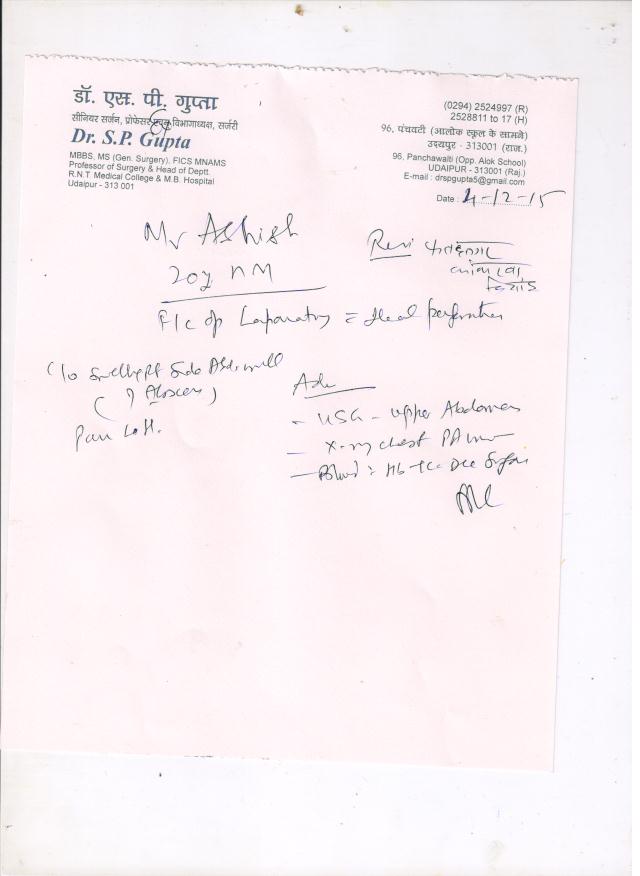 डॉ. एस. पी. गुप्ता
सीनियर सर्जन, प्रोफेसर एवम् विभागाध्यक्ष, सर्जरी
Dr. S.P. Gupta
MBBS, MS (Gen. Surgery), FICS MNAMS
Professor of Surgery & Head of Deptt.
R.N.T. Medical College & M.B. Hospital
Udaipur - 313 001
(0294) 2524997 (R)
2528811 to 17 (H)
96, पंचवटी (आलोक स्कूल के सामने)
उदयपुर - 313001 (राज.)
96, Panchawalti (Opp. Alok School)
UDAIPUR - 313001 (Raj.)
E-mail : drspgupta5@gmail.com
Date : 4-12-15
Mr Ashish
20y
F/c of = perforation
C/o Side
( ? Abscess )
Adv
- USG - Upper Abdomen
- X-ray chest PA view
- Blood : Hb TLC DLC Sugar